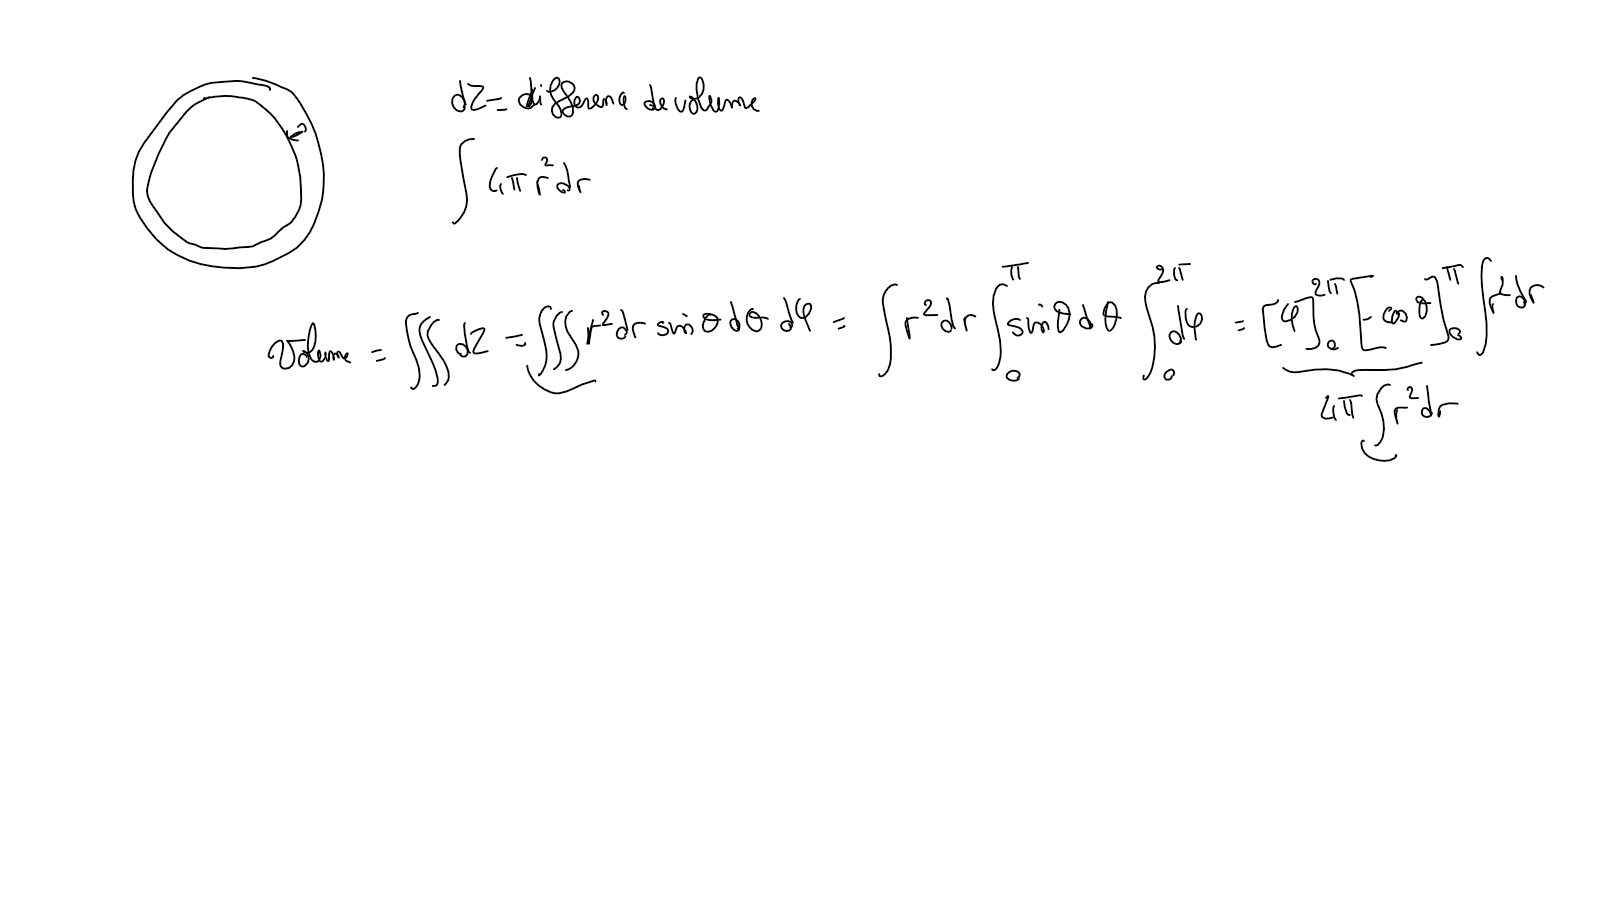 dZ = différence de volume
∫ 4π r² dr
Volume = ∭ dZ = ∭ r² dr sin θ dθ dφ = ∫ r² dr ∫₀^π sin θ dθ ∫₀^2π dφ = [φ]₀^2π [- cos θ]₀^π ∫ r² dr
4π ∫ r² dr